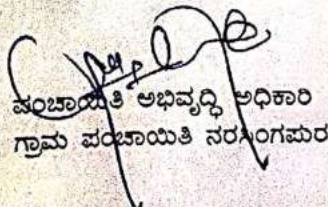 ಪಂಚಾಯಿತಿ ಅಭಿವೃದ್ಧಿ ಅಧಿಕಾರಿ
ಗ್ರಾಮ ಪಂಚಾಯಿತಿ ನರಸಿಂಗಪುರ